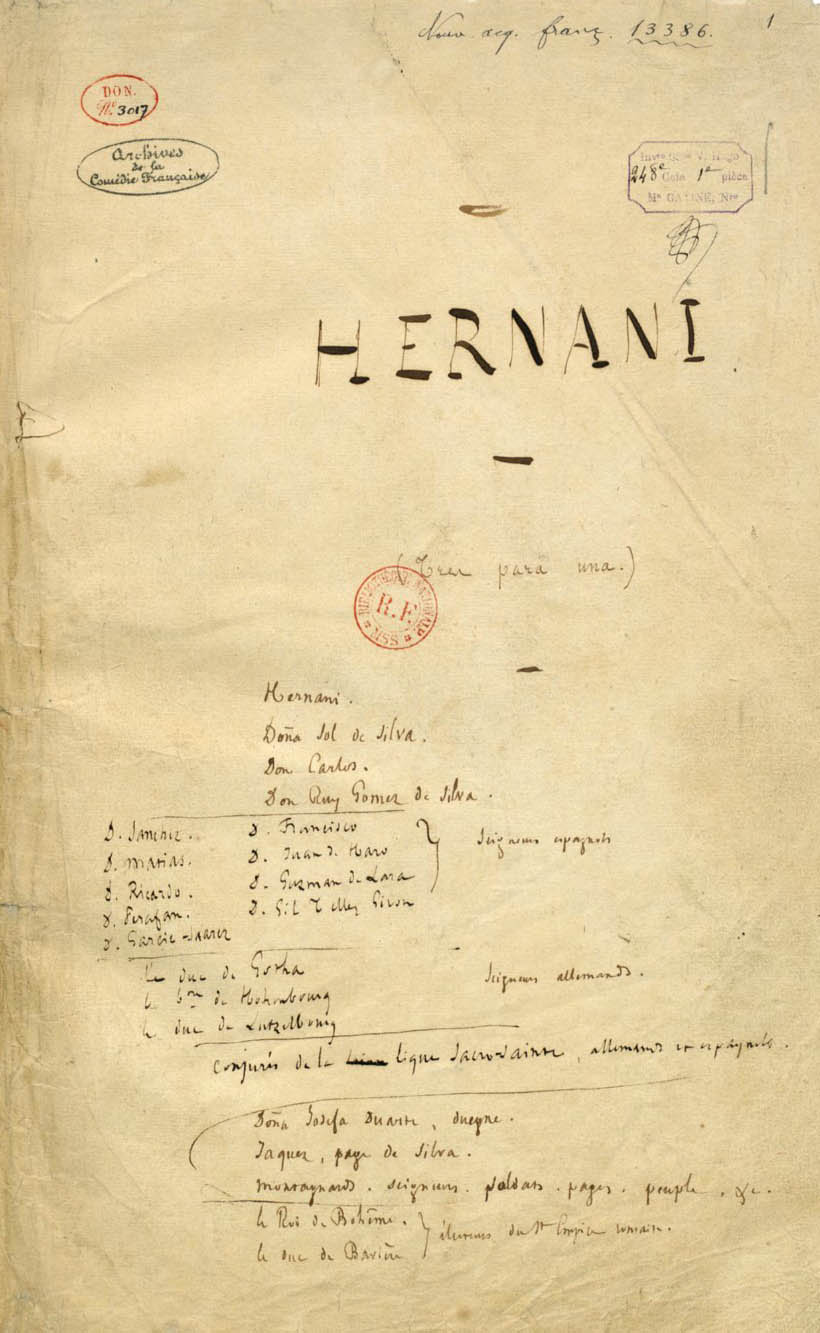 Nouv. acq. franç. 13386.
1
DON.
No 3017
Archives
de la
Comédie Française
Inventaire V. Hugo
248e Cote 1e pièce
Me GATINE, Nre
HERNANI.
(Tres para una.)
BIBLIOTHÈQUE NATIONALE
R.F.
MSS
Hernani.
Doña Sol de Silva.
Don Carlos.
Don Ruy Gomez de Silva.
D. Sanchez. D. Francisco
D. Matias. D. Juan de Haro
D. Ricardo. D. Guzman de Lara
D. Gil Tellez Giron
D. Garcie-Suarez
Seigneurs espagnols
le duc de Gotha
le bon de Hohenbourg
le duc de Lutzelbourg
Seigneurs allemands.
Conjurés de la ligue sacro-sainte, allemands et espagnols.
Doña Josefa Duarte, duegne.
Jaquez, page de Silva.
montagnards. seigneurs. soldats. pages. peuple. &c.
le Roi de Bohême.
le duc de Bavière
électeurs du St Empire romain.